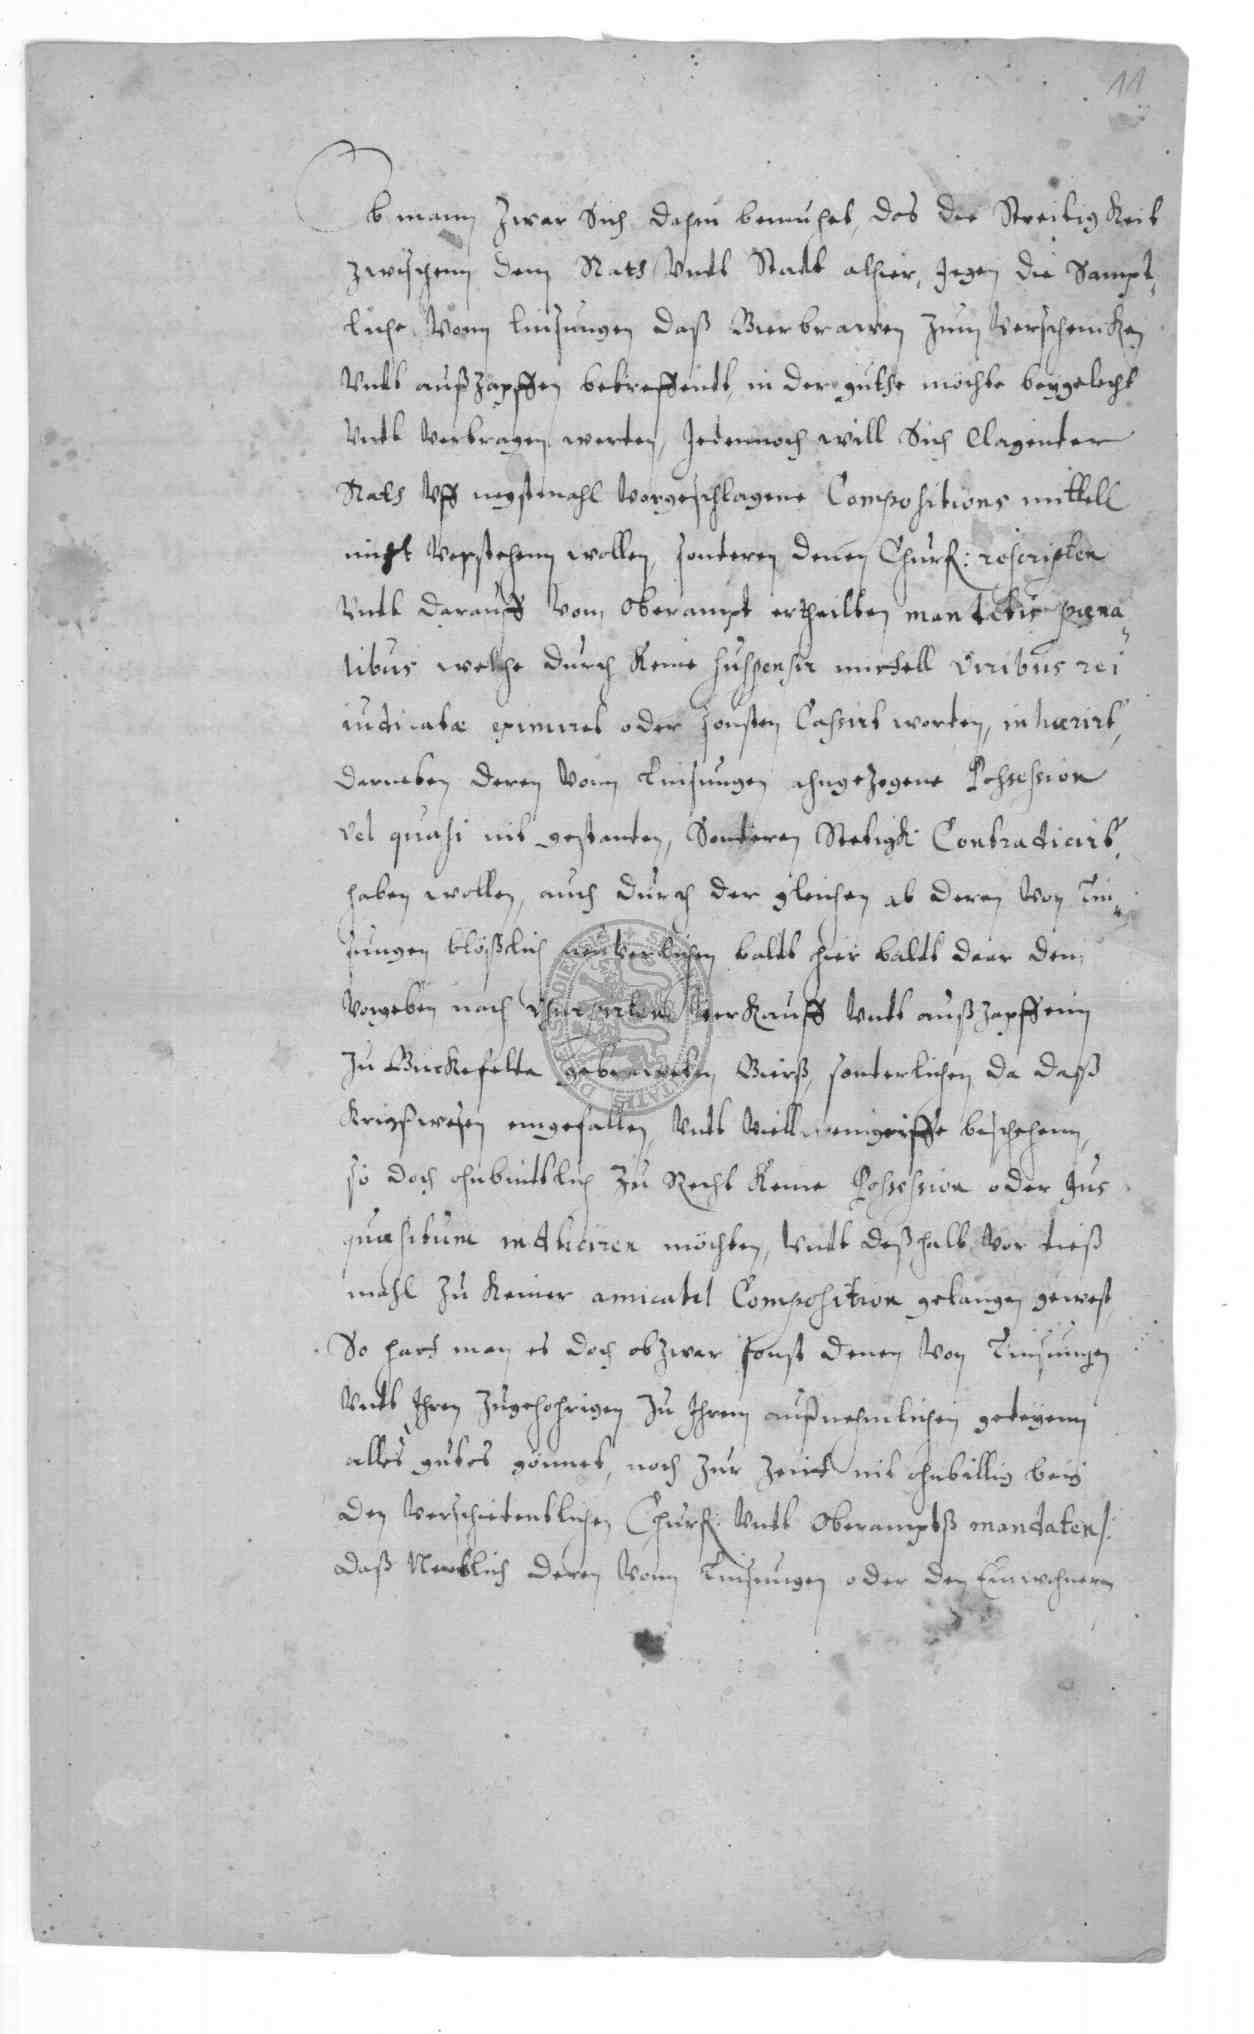 11
Ob mann zwar Sich dahin bemuhet, das die Streitigkeit
zwischenn dem Rath Undt Stadt alhier, gegen die Sampt-
liche Vonn linsungen daß Bierbrawen zum Verschencken
Undt außzapffen betreffendt, in der guthe möchte beygelecht
Undt Vertragen werden, Jedennoch will Sich Clagender
Rath Uff negstmahl Vorgeschlagene Compositions mittell
nicht Verstehenn wollen, sonderen denen Churf: rescripten
Undt darauff Vom Oberampt ertheilten mandatis pœna-
libus welche durch keine suspensif mittell viribus rei
iudicatæ eximiret oder sonsten Cassirt worden, inhærirt,
darneben deren Vonn Linsungen ahngezogene Possession
vel quasi nit gestanden, Sonderen Stetigk Contradicirt
haben wollen, auch durch der gleichen ab deren Von Lin-
sungen bloßlich baldt hier baldt daar dem
Vorgeben nach Verkauff Undt außzapffenn
zu Birckefelde gebraweten Bierß, sonderlichen da daß
Krigßwesen eingefallen, Undt beschehenn,
so doch ohnbindtlich zu Recht keine Possession oder Jus
quæsitum induciren möchten, Undt deßhalb Vor dieß
mahl zu keiner amicabel Composition gelangen gewest,
So hart man es doch obzwar sonst denen Von Linsungen
Undt Ihren Zugehohrigen zu Ihrem außnehmlichen gedeyenn
alles gutes gönnet, noch zur Zeit nit ohnbillig bey
den Verschiedentlichen Churf: Undt Oberamptß mandaten /:
daß Nemblich deren Vonn Linsungen oder den Einwohnern